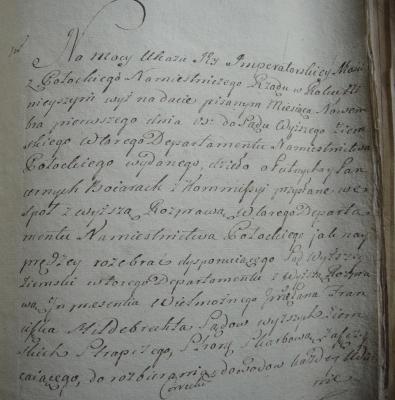 Na mocy Ukazu Jey Imperatorskiey Mości
z Połockiego Namiestniczego Rządu w Roku
nieyszym wyż na dacie pisanym Miesiąca Nowem
bra pierwszego dnia do Sądu Wyższego Ziem
skiego wtorego Departamentu Namiestnictwa
Połockiego wydanego, dzieło o Putnych y Pan
cernych Boiarach z Kommissyi przysłane wes
poł z wyższą Rozprawą wtorego Departa
mentu Namiestnictwa Połockiego jak nay
prędzey rozebrać dysponuiącego Sąd Wyższy
Ziemski wtorego Departamentu z wyższą Rozpra
wą, in presentia Wielmożnego Franc
iszka Hildebrandta Sądow wyższych Ziem
skich Strapczego, Stronę Skarbową
caiącego, do rozbierania dowodow każdey